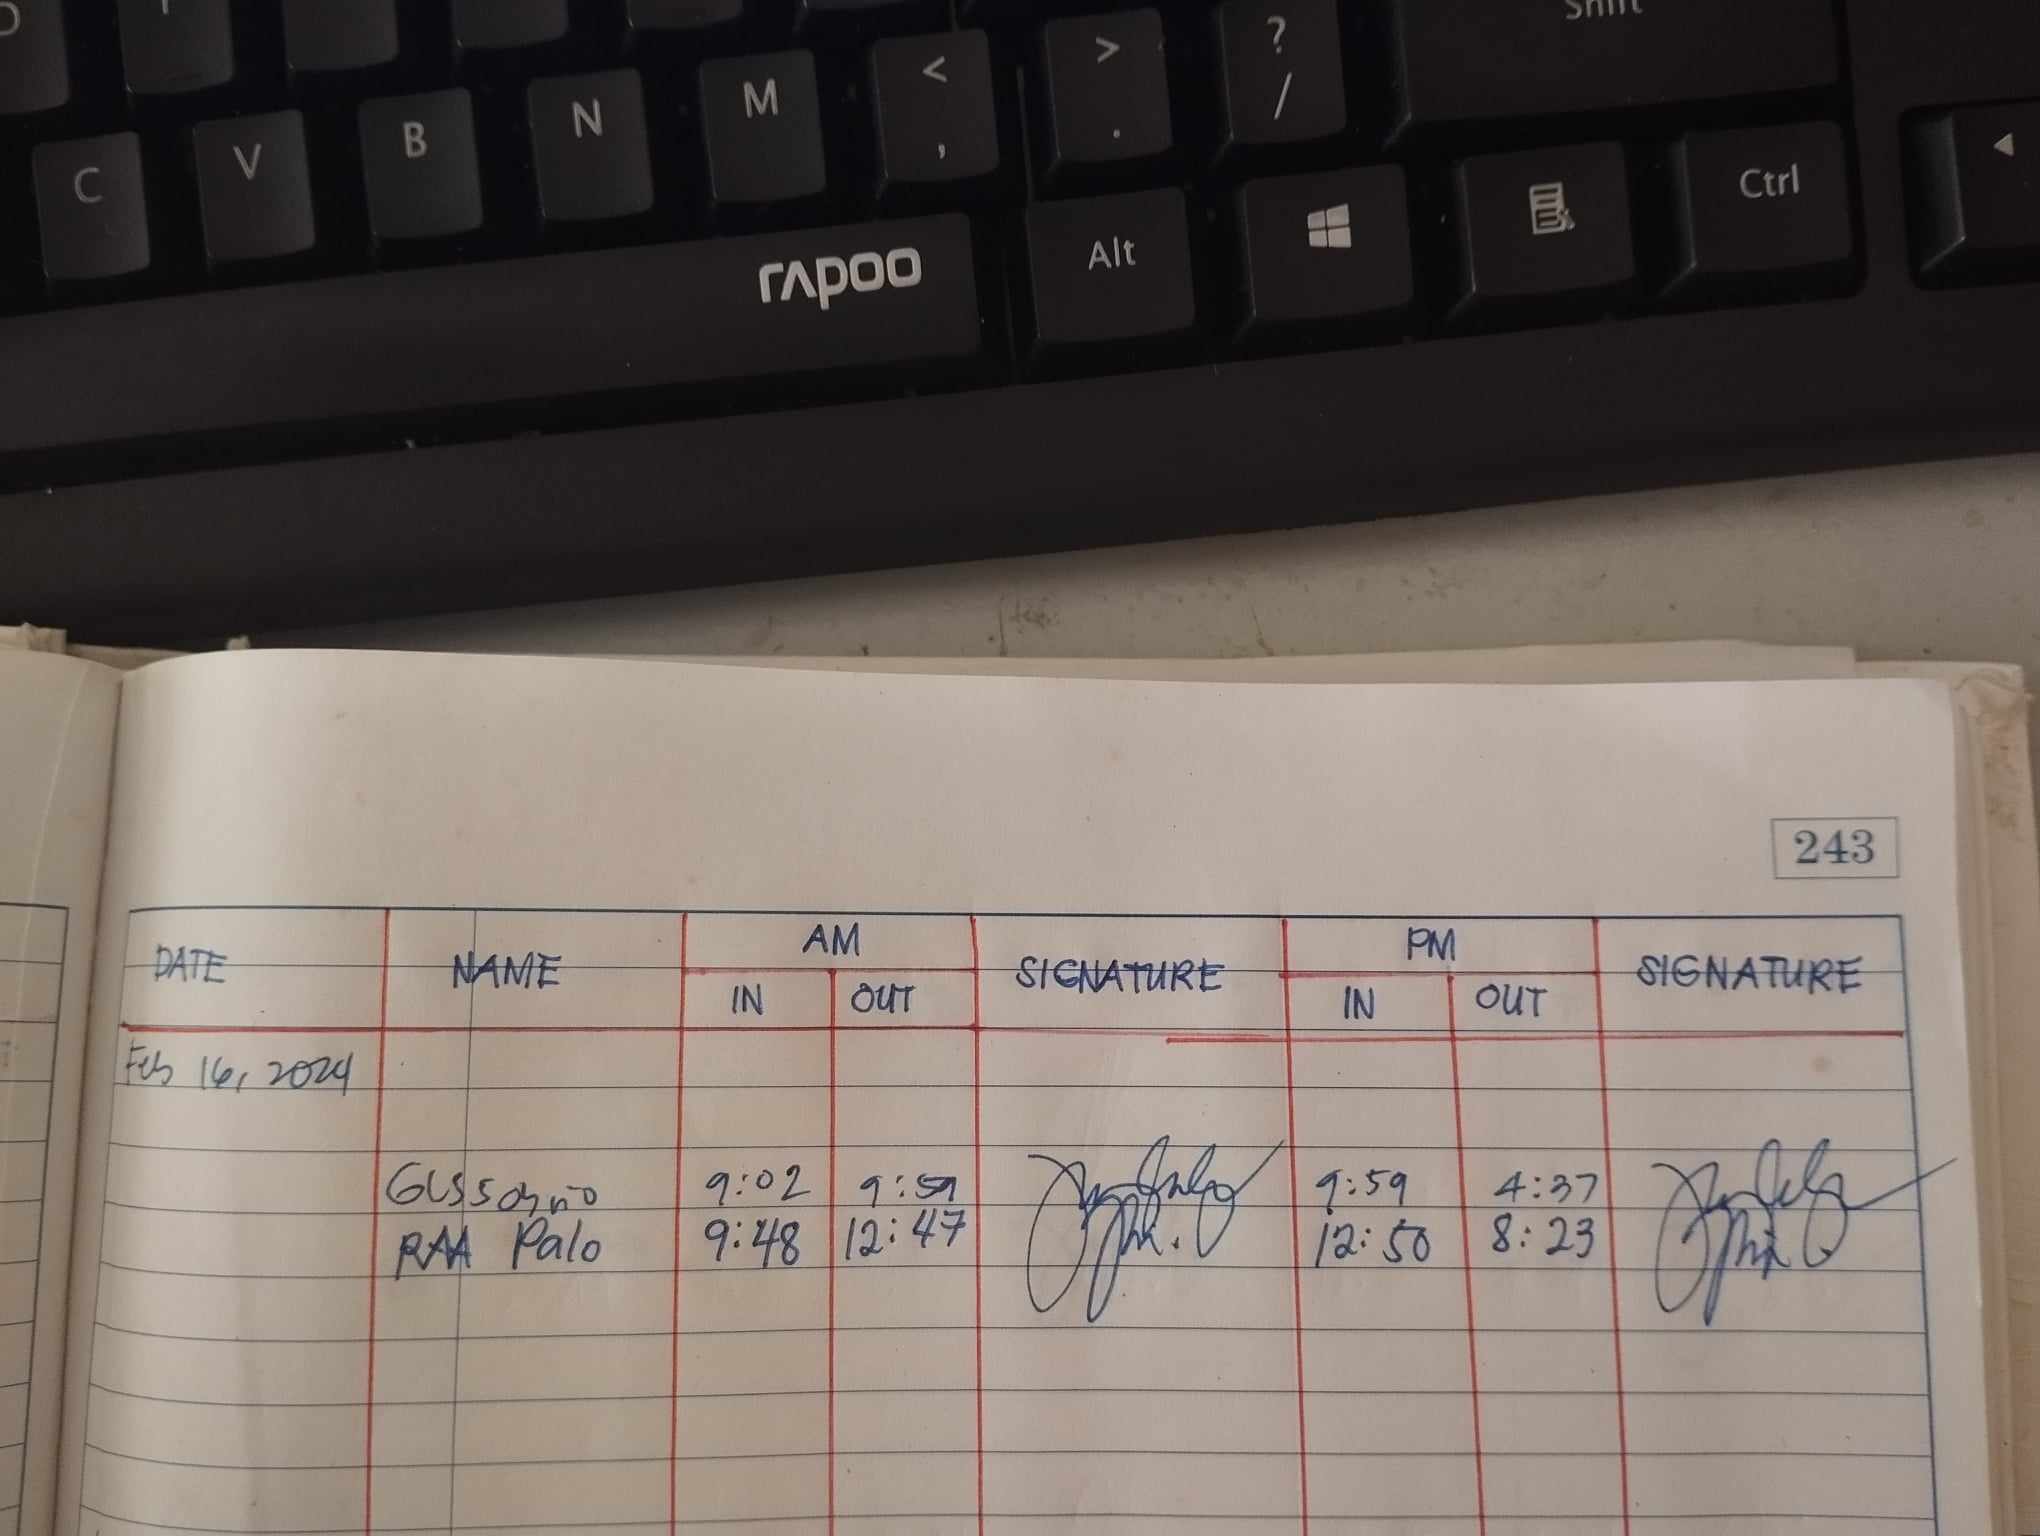 Shift
C V B N M < , > . ? /
rapoo Alt Ctrl
243
DATE NAME AM SIGNATURE PM SIGNATURE
IN OUT IN OUT
Feb 16, 2024
9:02 9:59 9:59 4:37
RAA Palo 9:48 12:47 12:50 8:23